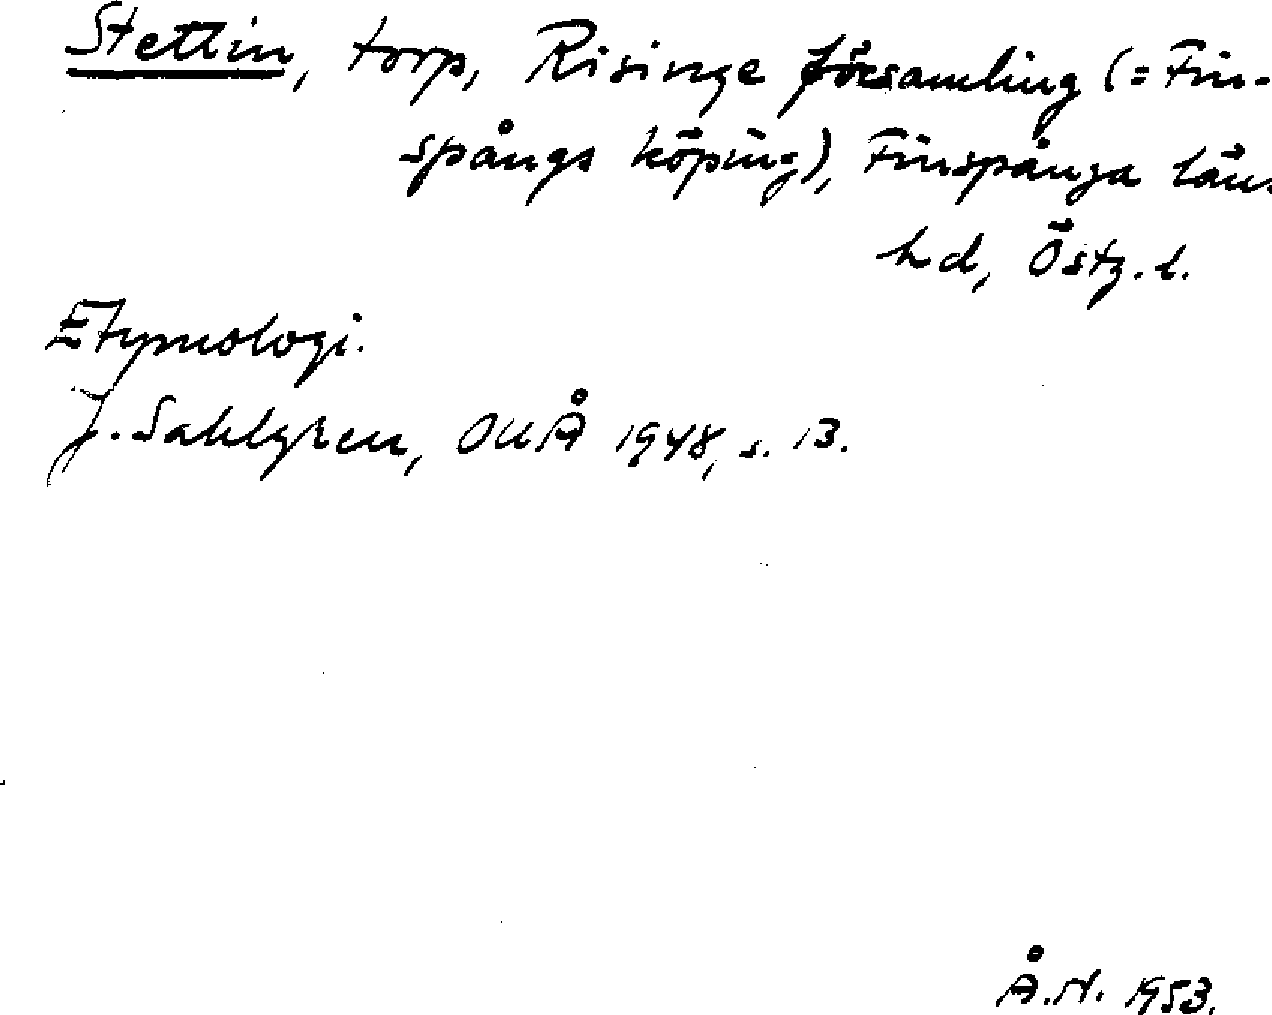 Stettin, torp, Risinge församling (= Fin-
spångs köping), Finspånga läns
hd, Östg. l.
Etymologi.
J. Sahlgren, OUÅ 1948, s. 13.
Å.N. 1953.